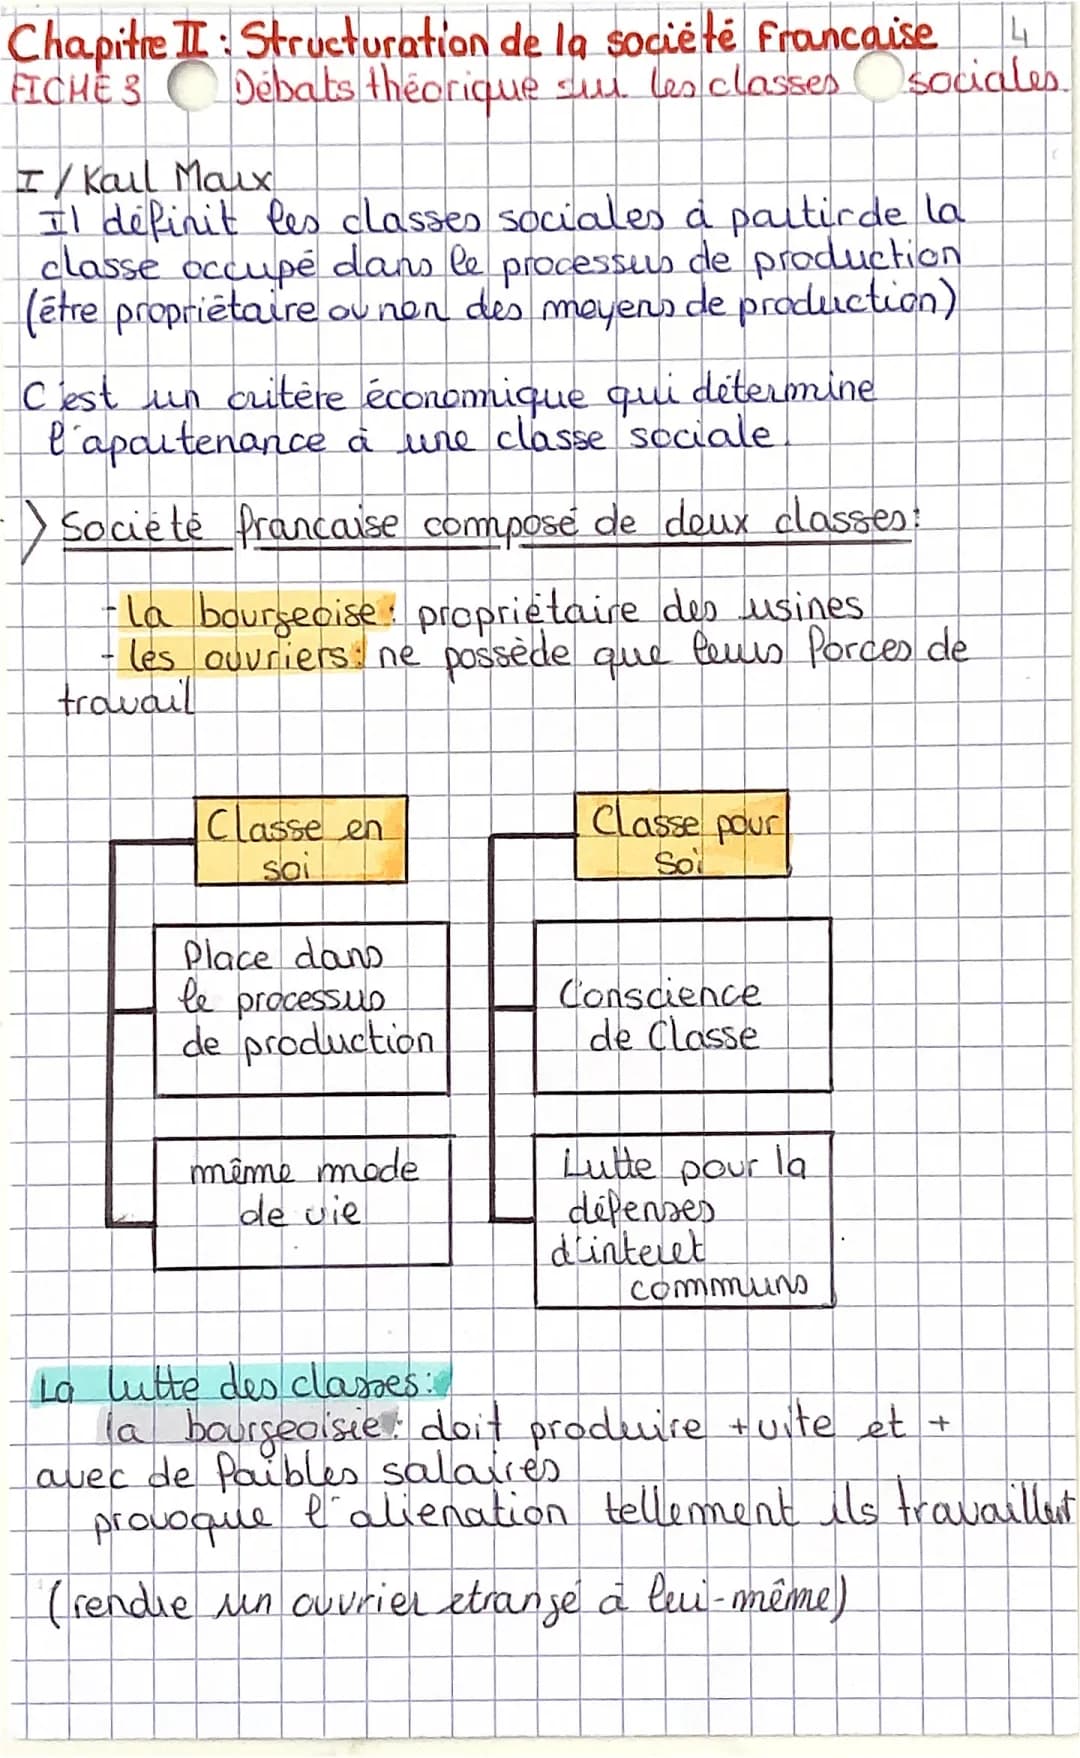 Chapitre II : Structuration de la société francaise 4
FICHE 3 Débats théorique sur les classes sociales.
I / Karl Marx
Il définit les classes sociales à partir de la
classe occupé dans le processus de production
(être propriétaire ou non des moyens de production)
C'est un critère économique qui détermine
l'apartenance à une classe sociale.
Société française composé de deux classes:
-la bourgeoise : propriétaire des usines
-les ouvriers : ne possède que leurs forces de
travail
Classe en
soi
Place dans
le processus
de production
même mode
de vie
Classe pour
Soi
Conscience
de Classe
Lutte pour la
défenses
d'interet
communs
La lutte des classes:
la bourgeoisie : doit produire + vite et +
avec de faibles salaires
provoque l'alienation tellement ils travaillent
(rendre un ouvrier etrangé à lui-même)